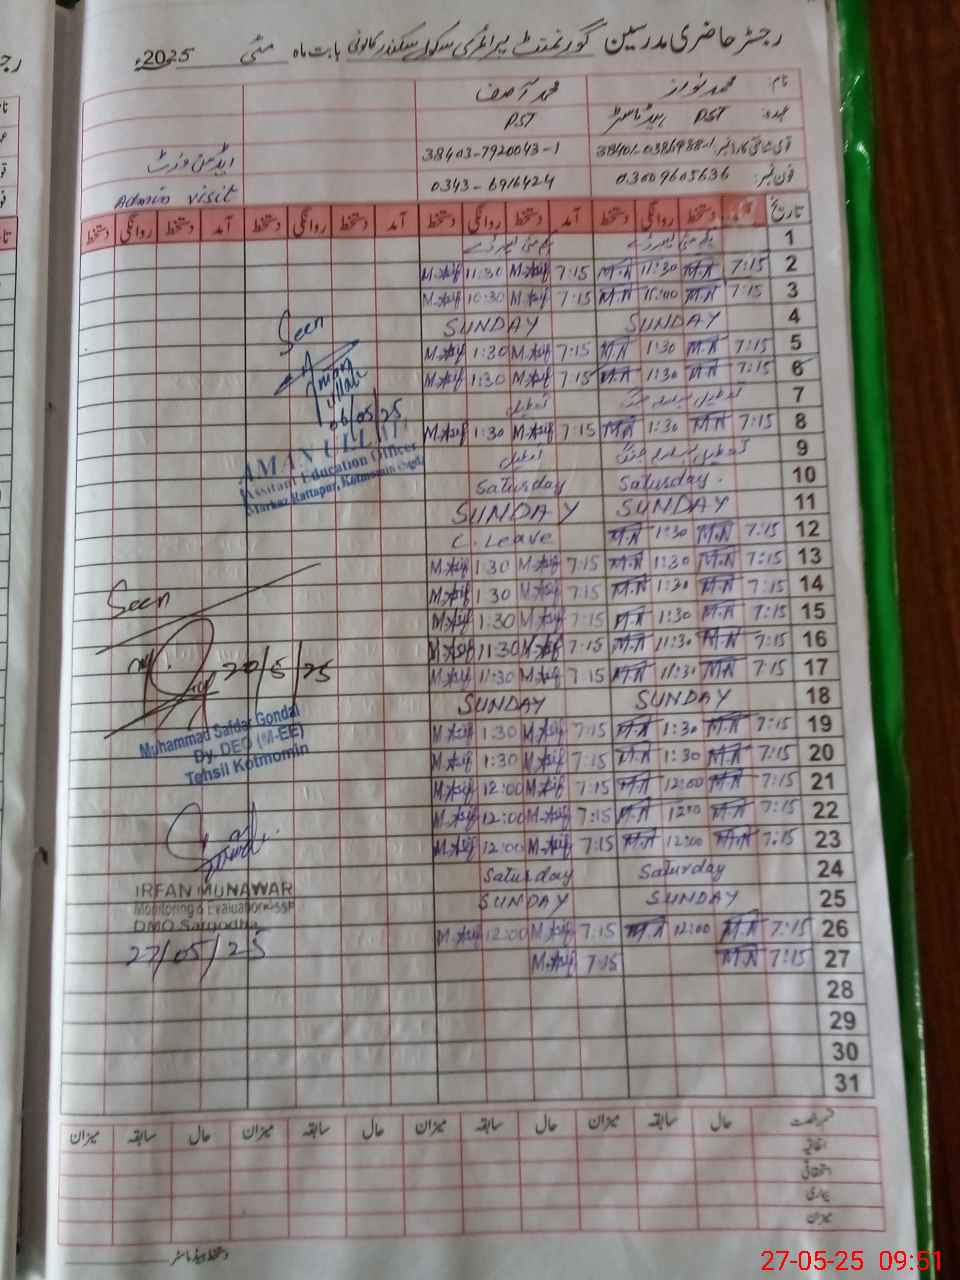 رجسٹر حاضری مدرسین گورنمنٹ پرائمری سکول سکندر کالونی بابت ماہ مئی 2025ء
نام: محمد نواز محمد آصف
عہدہ: PST ہیڈ ماسٹر PST
شناختی کارڈ نمبر 38403-7920043-1 ایڈمن وزٹ
فون نمبر: 03009605636 0343-6916424 Admin visit
تاریخ آمد دستخط روانگی دستخط آمد دستخط روانگی دستخط آمد دستخط روانگی دستخط آمد دستخط روانگی دستخط
1
2 7:15 M.N 11:30 M.N 7:15 M.Asif 11:30 M.Asif
3 7:15 M.N M.N 7:15 M.Asif 10:30 M.Asif
4 SUNDAY SUNDAY
5 7:15 M.N 1:30 M.N 7:15 M.Asif 1:30 M.Asif
6 7:15 M.N 1:30 M.N 7:15 M.Asif 1:30 M.Asif
7 تعطیل
8 7:15 M.N 1:30 M.N 7:15 M.Asif 1:30 M.Asif
9 تعطیل
10 Saturday. Saturday
11 SUNDAY SUNDAY
12 7:15 M.N 1:30 M.N C. Leave
13 7:15 M.N 1:30 M.N 7:15 M.Asif 1:30 M.Asif
14 7:15 M.N 1:30 M.N 7:15 M.Asif 1:30 M.Asif
15 7:15 M.N 1:30 M.N 7:15 M.Asif 1:30 M.Asif
16 7:15 M.N 11:30 M.N 7:15 M.Asif 11:30 M.Asif
17 7:15 M.N 11:30 M.N 7:15 M.Asif 11:30 M.Asif
18 SUNDAY SUNDAY
19 7:15 M.N 1:30 M.N 7:15 M.Asif 1:30 M.Asif
20 7:15 M.N 1:30 M.N 7:15 M.Asif 1:30 M.Asif
21 7:15 M.N 12:00 M.N 7:15 M.Asif 12:00 M.Asif
22 7:15 M.N M.N 7:15 M.Asif 12:00 M.Asif
23 7:15 M.N 12:00 M.N 7:15 M.Asif 12:00 M.Asif
24 Saturday Saturday
25 SUNDAY SUNDAY
26 7:15 M.N 12:00 M.N 7:15 M.Asif 12:00 M.Asif
27 7:15 M.N 7:15 M.Asif
28
29
30
31
Seen
Aman
ullah
06/05/25
AMAN ULLAH
Assitant Education Officer
Markaz Rattapur, Kotmomin (Sgd)
Seen
20/5/25
Muhammad Safdar Gondal
Dy. DEO (M-EE)
Tehsil Kotmomin
IRFAN MUNAWAR
Monitoring & Evaluation-SSP
DMO Sargodha
27/05/25
حال سابقہ میزان حال سابقہ میزان حال سابقہ میزان حال سابقہ میزان
اتفاقیہ
استحقاقی
بیماری
میزان
دستخط ہیڈ ماسٹر
27-05-25 09:51